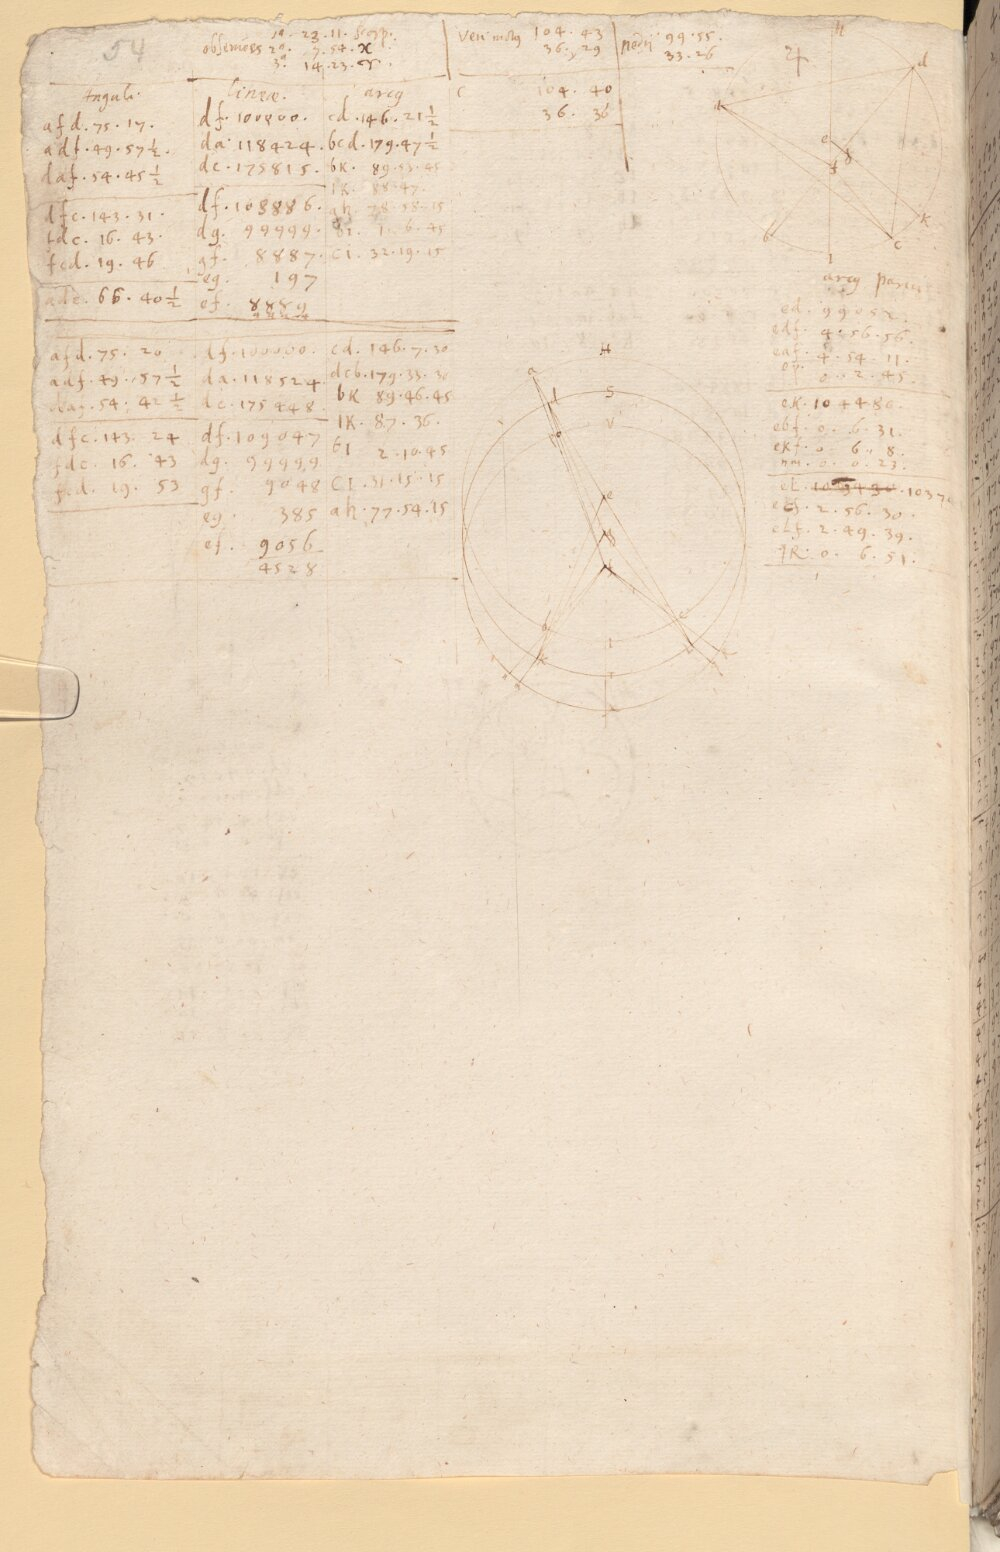 54
observões 1ª. 23. 11. scorp.
2ª. 7. 54. ♓
3ª 14. 23. ♈.
Veri motq 104. 43
36. 29
medii 99. 55.
33. 26
c 104. 40
36. 36
♃
Anguli.
afd. 75. 17.
adf. 49. 57 ½.
daf. 54. 45 ½
dfc. 143. 31.
fdc. 16. 43.
fcd. 19. 46
ade. 66. 40 ½
lineæ.
df. 100000.
da. 118424.
dc. 175815.
df. 108886.
dg. 99999.
gf. 8887.
eg. 197
ef. 8889
arcq
cd. 146. 21 ½
bcd. 179. 47 ½
bk. 89. 53. 45
lk. 88. 47.
ah 78. 58. 15
bl. 1. 6. 45
cl. 32. 19. 15
afd. 75. 20
adf. 49. 57 ½
daf. 54. 42 ½
dfc. 143. 24
fdc. 16. 43
fcd. 19. 53
df. 100000.
da. 118524
dc. 175448.
df. 109047
dg. 99999
gf. 9048
eg. 385
ef. 9056
4528
cd. 146. 7. 30
dcb. 179. 33. 30
bk 89. 46. 45
lk. 87. 36.
bl 2. 10. 45
cl. 31. 15. 15
ah. 77. 54. 15
H
d
a
e
g
f
k
b
c
l
ed. 99052.
edf. 4. 56. 56.
eaf. 4. 54. 11.
0. 2. 45.
ek. 104486.
ebf. 0. 6. 31.
ekf. 0. 6. 8.
nm. 0. 0. 23.
eL.
2. 56. 30.
eLf. 2. 49. 39.
qR. 0. 6. 51.
H
a
S
V
o
e
c
l